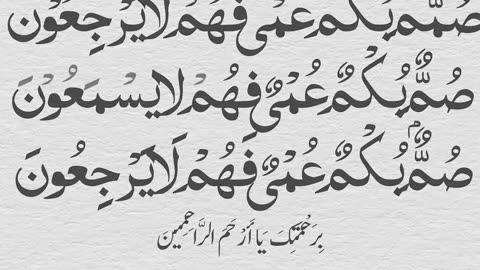 صُمٌّۢ بُكْمٌ عُمْىٌ فَهُمْ لَا يَرْجِعُوْنَ
صُمٌّۢ بُكْمٌ عُمْىٌ فَهُمْ لَا يَسْمَعُوْنَ
صُمٌّۢ بُكْمٌ عُمْىٌ فَهُمْ لَا يَرْجِعُوْنَ
بِرَحْمَتِكَ يَا أَرْحَمَ الرَّاحِمِينَ